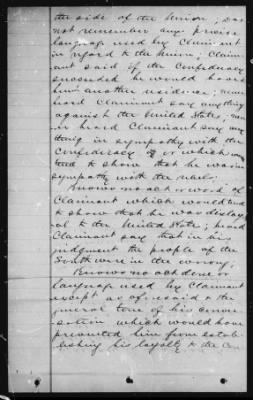 the side of the Union; does
not remember any precise
language used by Claimant
in regard to the Union; Claim-
ant said if the Confederacy
succeeded he would have
him another residence; never
heard Claimant say anything
against the United States, nev-
er heard Claimant say any
thing in sympathy with the
Confederacy or which
tend to show that he was in
sympathy with the rebels.
Knows no act or word of
Claimant which would tend
to show that he was disloy-
al to the United States; heard
Claimant say that in his
judgment the people of the
South were in the wrong.
Knows no act done or
language used by Claimant
except as aforesaid & the
general tone of his conver-
sation which would have
prevented him from estab-
lishing his loyalty to the Con